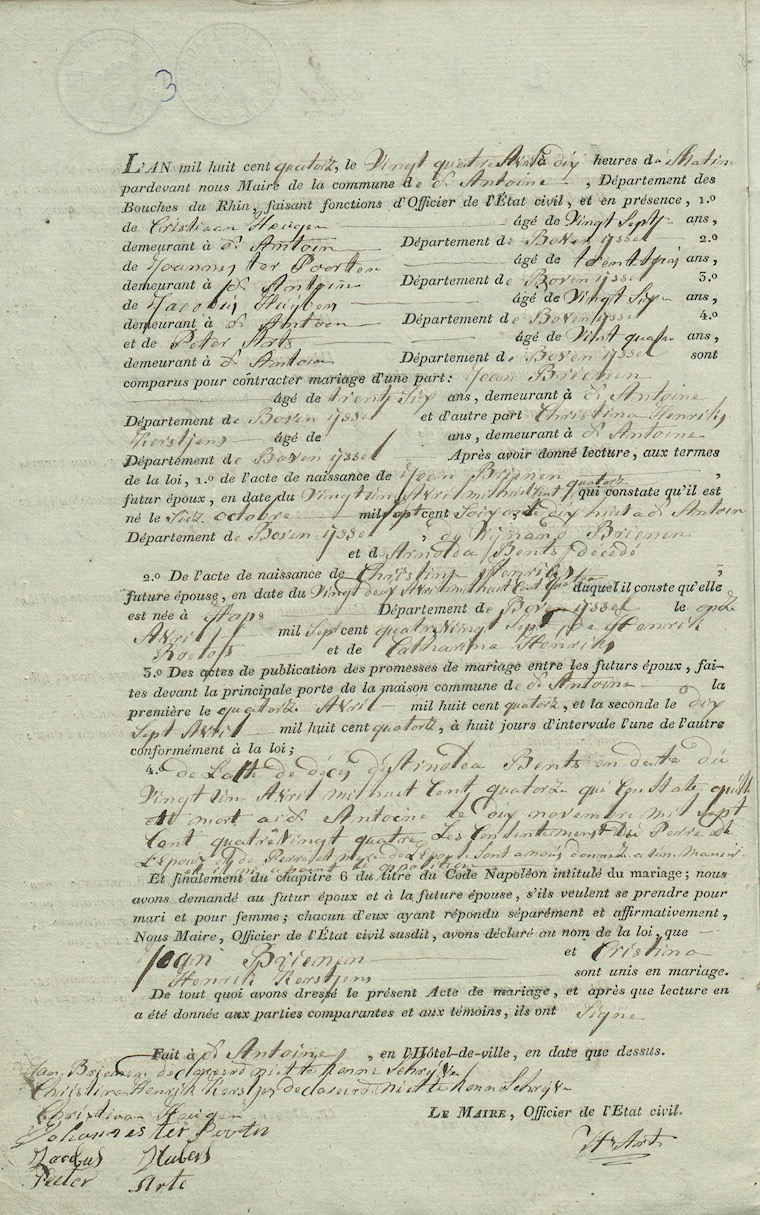 3
L'AN mil huit cent quatorz, le Vingt quatre Avril à dix heures du Matin
pardevant nous Maire de la commune de St Antoine, Département des
Bouches du Rhin, faisant fonctions d'Officier de l'État civil, et en présence, 1.o
de Cristiaan Heugen âgé de Vingt Sept ans,
demeurant à St Antoin Département de Boven yssel 2.o
de Joannes ter Poorten âgé de trent ans,
demeurant à St Antoine Département de Boven yssel 3.o
de Jacobus Huybers âgé de Vingt Six ans,
demeurant à St Antoen Département de Boven yssel 4.o
et de Peter Arts âgé de Vint quatre ans,
demeurant à St Antoin Département de Boven yssel sont
comparus pour contracter mariage d'une part: Jean Brienen
âgé de trenty Six ans, demeurant à St Antoine
Département de Boven yssel et d'autre part Christina Henriks
Kerstjens âgé de ans, demeurant à St Antoine
Département de Boven yssel Après avoir donné lecture, aux termes
de la loi, 1.o de l'acte de naissance de Jean Brienen,
futur époux, en date du Vingt un Avril mil huit Cent quatorz qui constate qu'il est
né le octobre mil Sept cent Soixante dix huit a St Antoin
Département de Boven yssel, de Wynand Brienen
et d Arnolda Bents décédé
2.o De l'acte de naissance de Christina Henriks,
future épouse, en date du Vingt deux Avril mil huit Cent quatorz duquel il conste qu'elle
est née à Haps Département de Boven yssel le onze
Avril mil Sept cent quatre Ving Sept de Henrik
Roelofs et de Catharina Henriks
3.o Des actes de publication des promesses de mariage entre les futurs époux, fai-
tes devant la principale porte de la maison commune de St Antoine la
première le quatorze Avril mil huit cent quatorz, et la seconde le dix
Sept Avril mil huit cent quatorze, à huit jours d'intervale l'une de l'autre
conformément à la loi;
4.o de L'acte de décès d'Arnolda Bents en date du
Vingt un Avril mil huit Cent quatorze qui Constate qu'elle
est mort a St Antoine le dix novembre mil Sept
Cent quatre Vingt quatre Les Consentement du Perre de
L'Epoux et de Perre et mere de L'Epouse Sont a nous donnez
Et finalement du chapitre 6 du titre du Code Napoléon intitulé du mariage; nous
avons demandé au futur époux et à la future épouse, s'ils veulent se prendre pour
mari et pour femme; chacun d'eux ayant répondu séparément et affirmativement,
Nous Maire, Officier de l'État civil susdit, avons déclaré au nom de la loi, que
Jean Brienen et Cristina
Henrik Kerstjens sont unis en mariage.
De tout quoi avons dressé le présent Acte de mariage, et après que lecture en
a été donnée aux parties comparantes et aux témoins, ils ont Signe
Fait à St Antoine, en l'Hôtel-de-ville, en date que dessus.
Jan Brienen declareerd niet te konne Schryve
Christina Henrik Kerstjens declareerd niet te konn Schryve
Christiaan Heugen
Johannes ter Poorten
LE MAIRE, Officier de l'Etat civil.
Jacobus Hubers
Peeter Arts